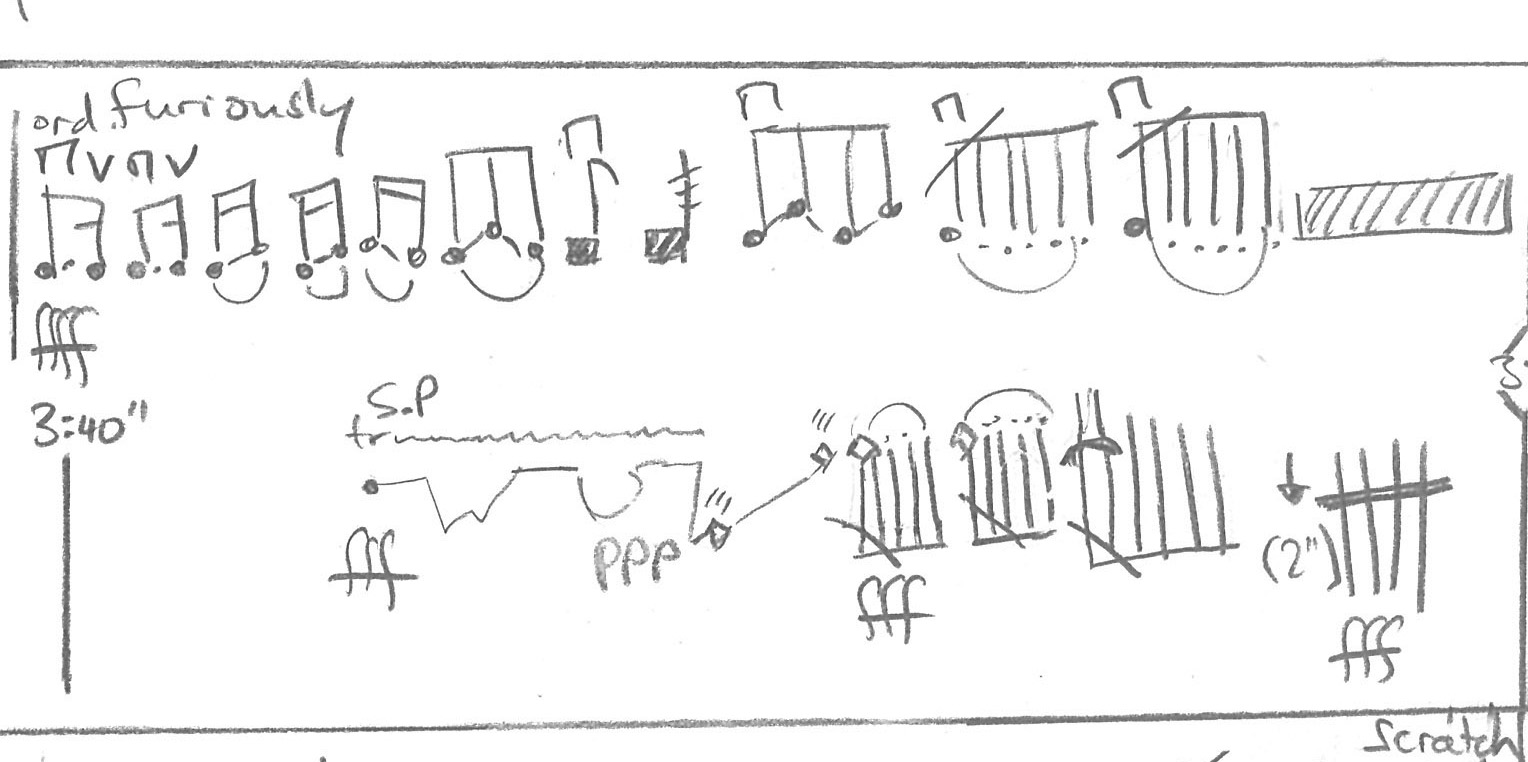 ord. furiously
ffff
3:40"
S.P
tr
fff
ppp
fff
(2")
fff
3:
Scratch